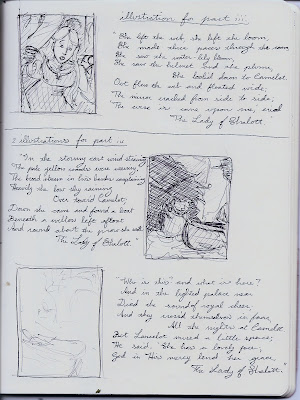 illustration for part iii
"She left the web she left the loom,
She made three paces through the room,
She saw the water lily bloom,
She saw the helmet and the plume,
She looked down to Camelot.
Out flew the web and floated wide;
The mirror cracked from side to side;
"The curse is come upon me, cried
The Lady of Shalott
2 illustrations for part iv
"In the stormy east wind straining
The pale yellow woods were waning,
The broad stream in his banks complaining
Heavily the low sky raining
Over tower'd Camelot;
Down she came and found a boat
Beneath a willow left afloat
And round about the prow she wrote
The Lady of Shalott.
"Who is this? and what is here?
And in the lighted palace near
Died the sound of royal cheer;
And they crossed themselves in fear,
All the nights at Camelot
But Lancelot mused a little space;
He said. "She has a lovely face;
God in His mercy lend her grace,
The Lady of Shalott."